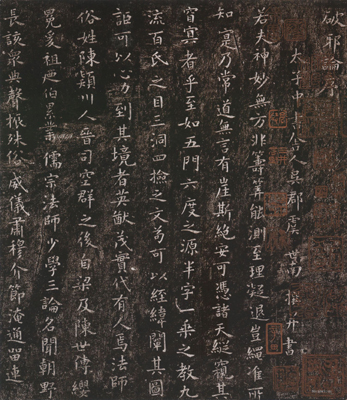 破邪論序
太子中書舍人吳郡虞世南撰并書
若夫神妙無方非籌筭能測至理凝邈豈繩準所
知寔乃常道無言有崖斯絶安可憑諸天縱窺其
窅冥者乎至如五門六度之源半字一乘之教九
流百氏之目三洞四撿之文苟可以經緯闡其圖
詎可以心力到其境者英猷茂實代有人焉法師
俗姓陳潁川人晉司空群之後自梁及陳世傳纓
冕爰祖迺伯累業儒宗法師少學三論名聞朝野
長該衆典聲振殊俗威儀肅穆介節淹通留連